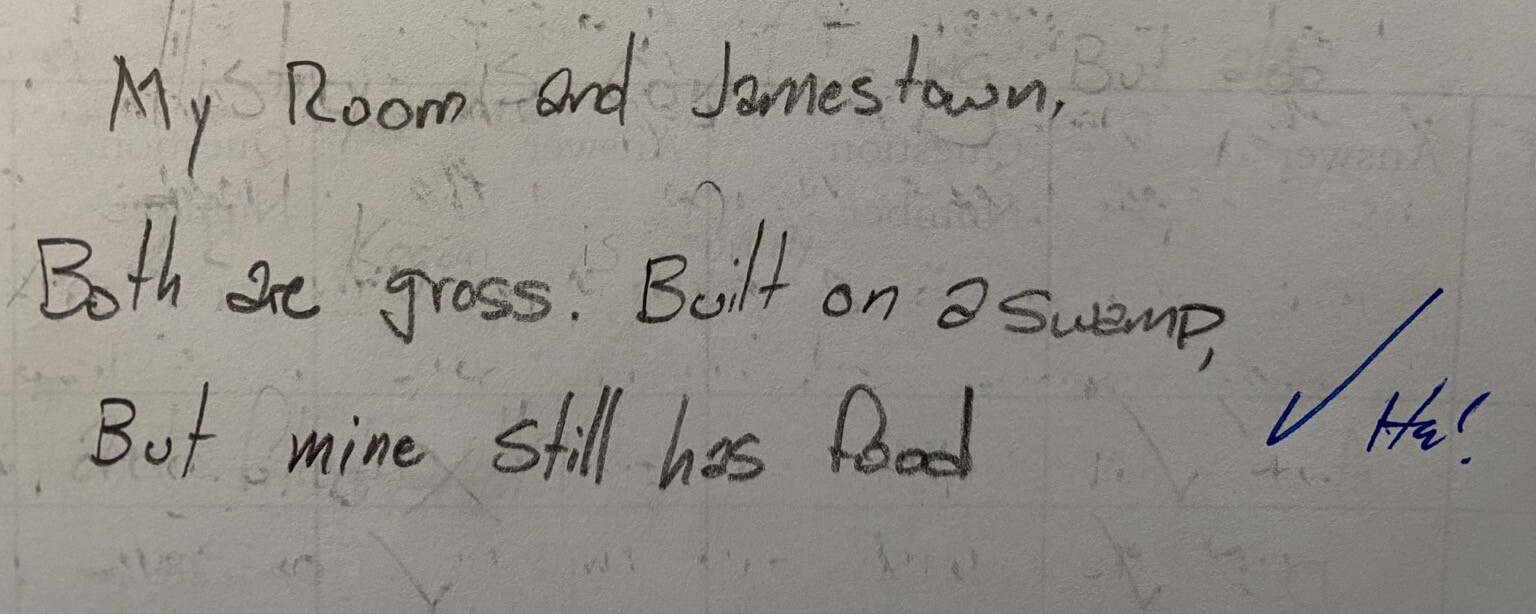 My Room and Jamestown,
Both are gross. Built on a swamp,
But mine still has food
Ha!